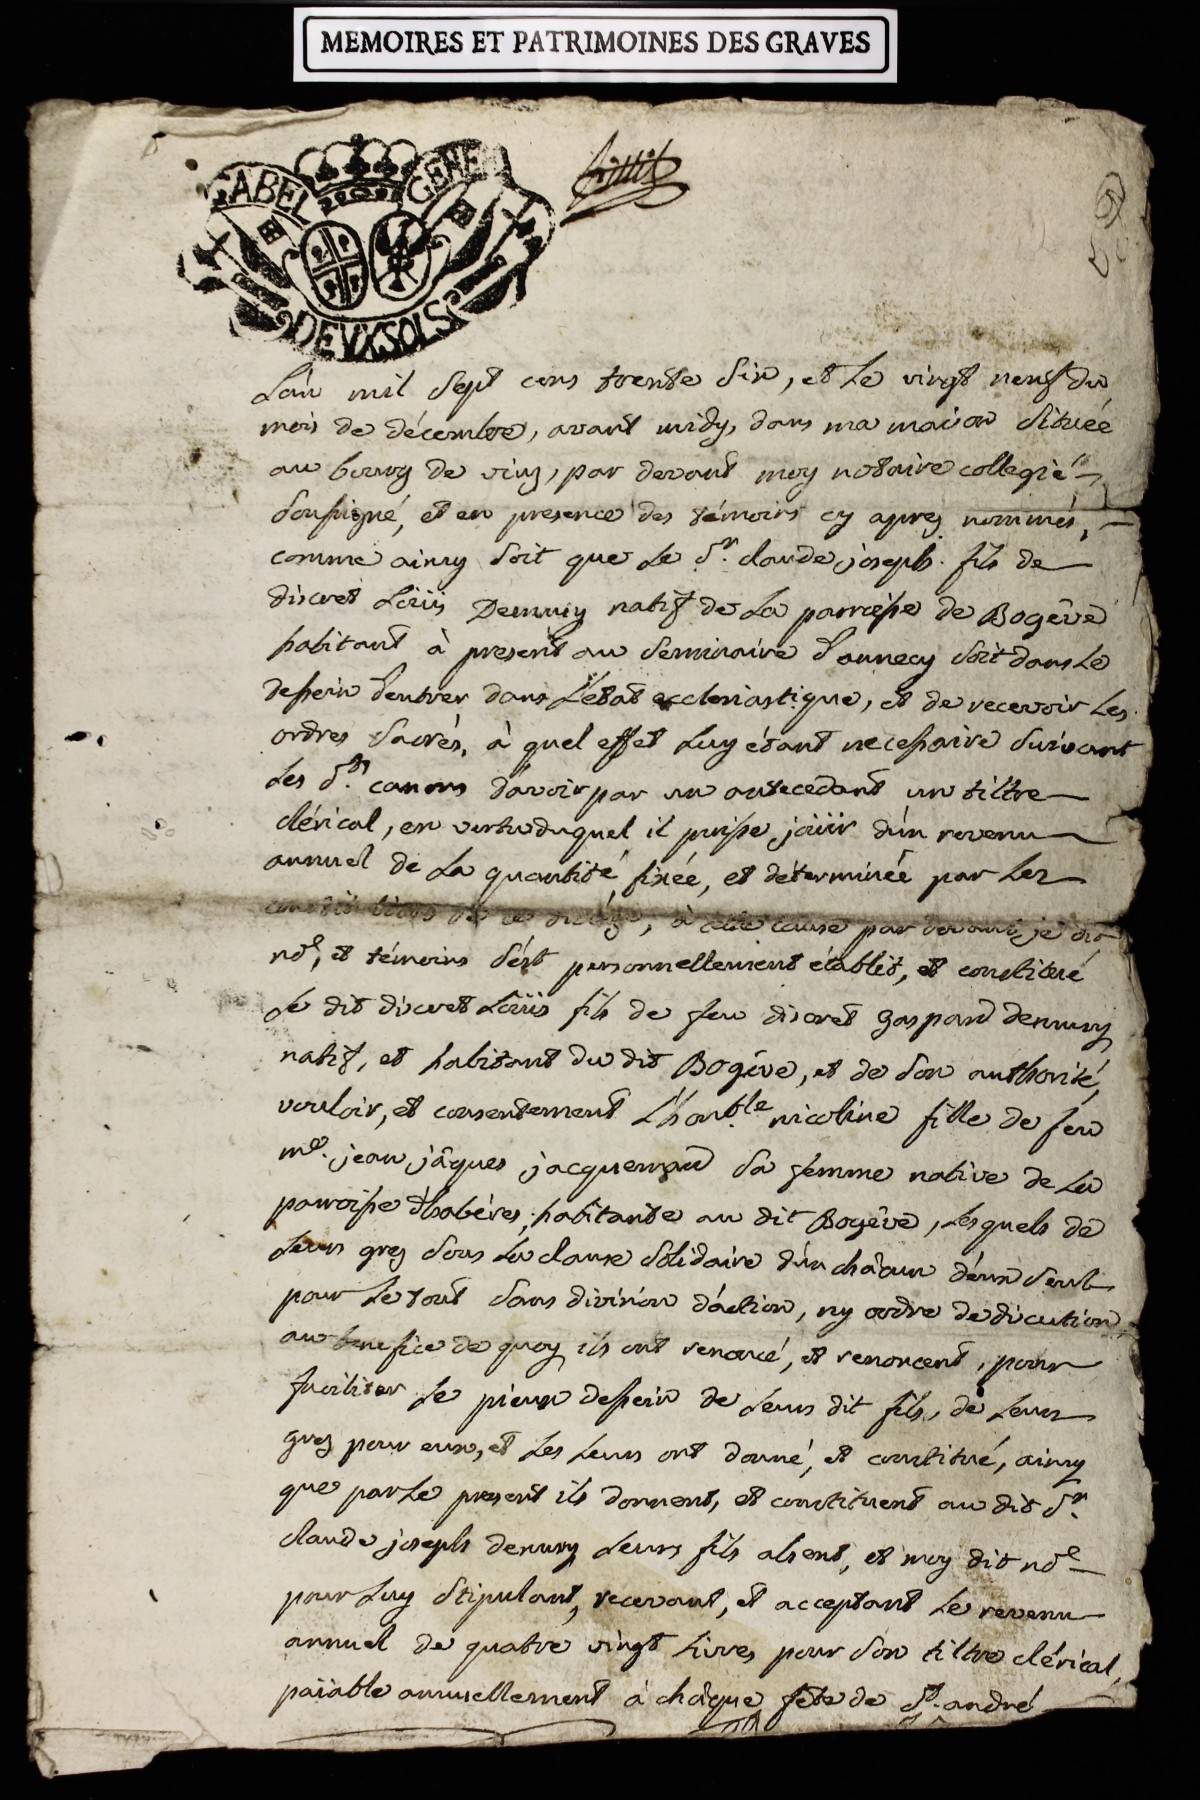 MEMOIRES ET PATRIMOINES DES GRAVES
GABEL GENE
DEUX SOLS
L'an mil sept cens trente six, et le vingt neuf du
mois de décembre, avant midy, dans ma maison située
au bourg de viuz, par devant moy notaire collegié
soussigné, et en presence des témoins cy apres nommés,
comme ainsy soit que le sr. claude joseph fils de
discret Loüis Demuy natif de la parroisse de Bogêve
habitant à present au seminaire d'annecy soit dans le
dessein d'entrer dans l'état ecclesiastique, et de recevoir les
ordres sacrés, à quel effet luy étant necessaire suivant
les sts. canons d'avoir par un antecedant un tiltre
clérical, en vertu duquel il puisse joüir d'un revenu
annuel de la quantité fixée, et déterminée par les
constitutions de ce diocése, à cette cause par devant je dit
nore, et témoins s'est personnellement établit, et constitué
le dit discret Loüis fils de feu discret gaspard demuy
natif, et habitant du dit Bogêve, et de son authorité,
vouloir, et consentement l'honble. nicoline fille de feu
me. jean jâques jacquemard sa femme native de la
parroisse d'habéres, habitante au dit Bogêve, lesquels de
leurs grez sous la clause solidaire d'un châcun d'eux seul
pour le tout sans division d'action, ny ordre de discution
au benefice de quoy ils ont renoncé, et renoncent, pour
faciliter le pieux dessein de leurs dit fils, de leurs
grez pour eux, et les leurs ont donné, et constitué, ainsy
que par le present ils donnent, et constituent au dit sr.
claude joseph demuy leurs fils absent, et moy dit nore
pour luy stipulant, recevant, et acceptant le revenu
annuel de quatre vingt livres pour son tiltre clérical,
païable annuellement à châque fête de st. andré